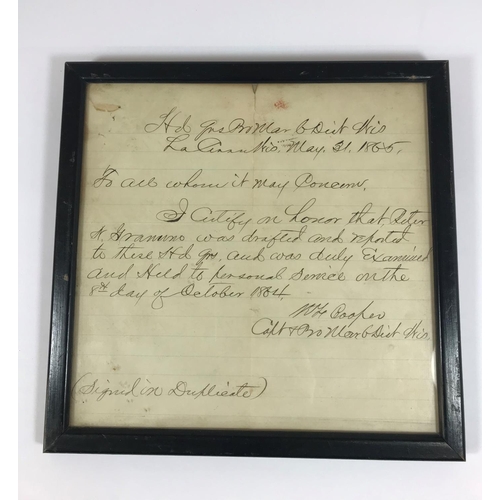 Hd Qrs Pro Mar 6 Dist Wis
La Crosse Wis. May 31. 1865.
To all whom it may Concern,
I Certify on honor that Peter
was drafted and reported
to these Hd Qrs, and was duly Examined
and Held to personal service on the
8th day of October 1864
Wm Cooper
Capt & Pro Mar 6 Dist Wis.
(Signed in Duplicate)